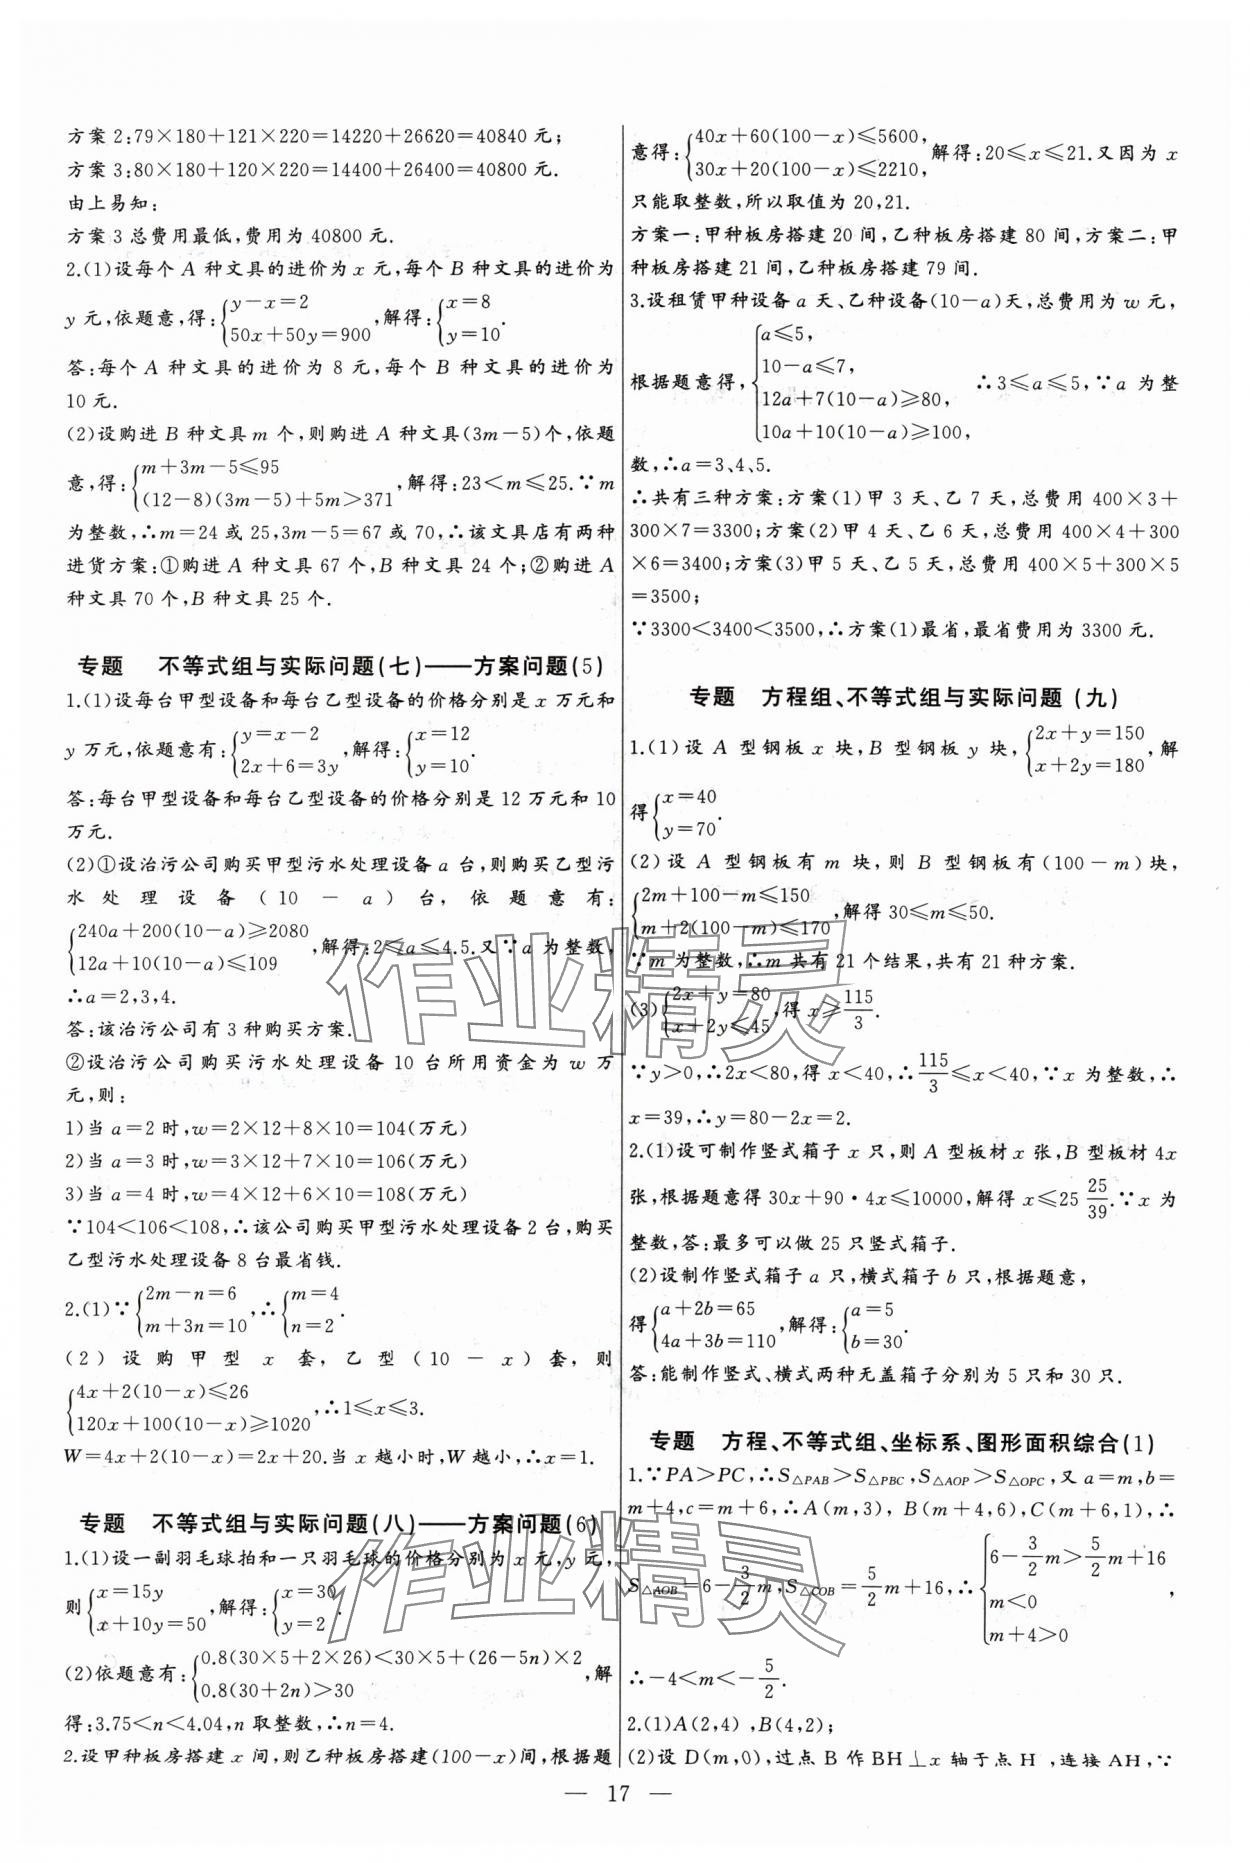 方案 2:79×180+121×220=14220+26620=40840 元;
方案 3:80×180+120×220=14400+26400=40800 元.
由上易知:
方案 3 总费用最低,费用为 40800 元.
2.(1)设每个 A 种文具的进价为 x 元,每个 B 种文具的进价为
y 元,依题意,得:{y-x=2 50x+50y=900,解得:{x=8 y=10.
答:每个 A 种文具的进价为 8 元,每个 B 种文具的进价为
10 元.
(2)设购进 B 种文具 m 个,则购进 A 种文具(3m-5)个,依题
意,得:{m+3m-5≤95 (12-8)(3m-5)+5m>371,解得:23<m≤25.∵m
为整数,∴m=24 或 25,3m-5=67 或 70,∴该文具店有两种
进货方案:①购进 A 种文具 67 个,B 种文具 24 个;②购进 A
种文具 70 个,B 种文具 25 个.
专题 不等式组与实际问题(七)——方案问题(5)
1.(1)设每台甲型设备和每台乙型设备的价格分别是 x 万元和
y 万元,依题意有:{y=x-2 2x+6=3y,解得:{x=12 y=10.
答:每台甲型设备和每台乙型设备的价格分别是 12 万元和 10
万元.
(2)①设治污公司购买甲型污水处理设备 a 台,则购买乙型污
水处理设备(10-a)台,依题意有:
{240a+200(10-a)≥2080 12a+10(10-a)≤109,解得:2≤a≤4.5.又∵a 为整数,
∴a=2,3,4.
答:该治污公司有 3 种购买方案.
②设治污公司购买污水处理设备 10 台所用资金为 w 万
元,则:
1)当 a=2 时,w=2×12+8×10=104(万元)
2)当 a=3 时,w=3×12+7×10=106(万元)
3)当 a=4 时,w=4×12+6×10=108(万元)
∵104<106<108,∴该公司购买甲型污水处理设备 2 台,购买
乙型污水处理设备 8 台最省钱.
2.(1)∵{2m-n=6 m+3n=10,∴{m=4 n=2.
(2)设购甲型 x 套,乙型(10-x)套,则
{4x+2(10-x)≤26 120x+100(10-x)≥1020,∴1≤x≤3.
W=4x+2(10-x)=2x+20.当 x 越小时,W 越小,∴x=1.
专题 不等式组与实际问题(八)——方案问题(6)
1.(1)设一副羽毛球拍和一只羽毛球的价格分别为 x 元,y 元,
则{x=15y x+10y=50,解得:{x=30 y=2.
(2)依题意有:{0.8(30×5+2×26)<30×5+(26-5n)×2 0.8(30+2n)>30,解
得:3.75<n<4.04,n 取整数,∴n=4.
2.设甲种板房搭建 x 间,则乙种板房搭建(100-x)间,根据题
意得:{40x+60(100-x)≤5600, 30x+20(100-x)≤2210,解得:20≤x≤21.又因为 x
只能取整数,所以取值为 20,21.
方案一:甲种板房搭建 20 间,乙种板房搭建 80 间,方案二:甲
种板房搭建 21 间,乙种板房搭建 79 间.
3.设租赁甲种设备 a 天、乙种设备(10-a)天,总费用为 w 元,
根据题意得,{a≤5, 10-a≤7, 12a+7(10-a)≥80, 10a+10(10-a)≥100, ∴3≤a≤5,∵a 为整
数,∴a=3、4、5.
∴共有三种方案:方案(1)甲 3 天、乙 7 天,总费用 400×3+
300×7=3300;方案(2)甲 4 天、乙 6 天,总费用 400×4+300
×6=3400;方案(3)甲 5 天、乙 5 天,总费用 400×5+300×5
=3500;
∵3300<3400<3500,∴方案(1)最省,最省费用为 3300 元.
专题 方程组、不等式组与实际问题 (九)
1.(1)设 A 型钢板 x 块,B 型钢板 y 块,{2x+y=150 x+2y=180,解
得{x=40 y=70.
(2)设 A 型钢板有 m 块,则 B 型钢板有(100-m)块,
{2m+100-m≤150 m+2(100-m)≤170,解得 30≤m≤50.
∵m 为整数,∴m 共有 21 个结果,共有 21 种方案.
(3){2x+y=80 x+2y≤45,得 x≥115/3.
∵y>0,∴2x<80,得 x<40,∴115/3≤x<40,∵x 为整数,∴
x=39,∴y=80-2x=2.
2.(1)设可制作竖式箱子 x 只,则 A 型板材 x 张,B 型板材 4x
张,根据题意得 30x+90·4x≤10000,解得 x≤25 25/39.∵x 为
整数,答:最多可以做 25 只竖式箱子.
(2)设制作竖式箱子 a 只,横式箱子 b 只,根据题意,
得{a+2b=65 4a+3b=110,解得:{a=5 b=30.
答:能制作竖式、横式两种无盖箱子分别为 5 只和 30 只.
专题 方程、不等式组、坐标系、图形面积综合(1)
1.∵PA>PC,∴S△PAB>S△PBC,S△AOP>S△OPC,又 a=m,b=
m+4,c=m+6,∴A(m,3),B(m+4,6),C(m+6,1),∴
S△AOB=6-3/2m,S△COB=5/2m+16,∴{6-3/2m>5/2m+16 m<0 m+4>0,
∴-4<m<-5/2.
2.(1)A(2,4),B(4,2);
(2)设 D(m,0),过点 B 作 BH⊥x 轴于点 H,连接 AH,∵
— 17 —
作业精灵
作业精灵